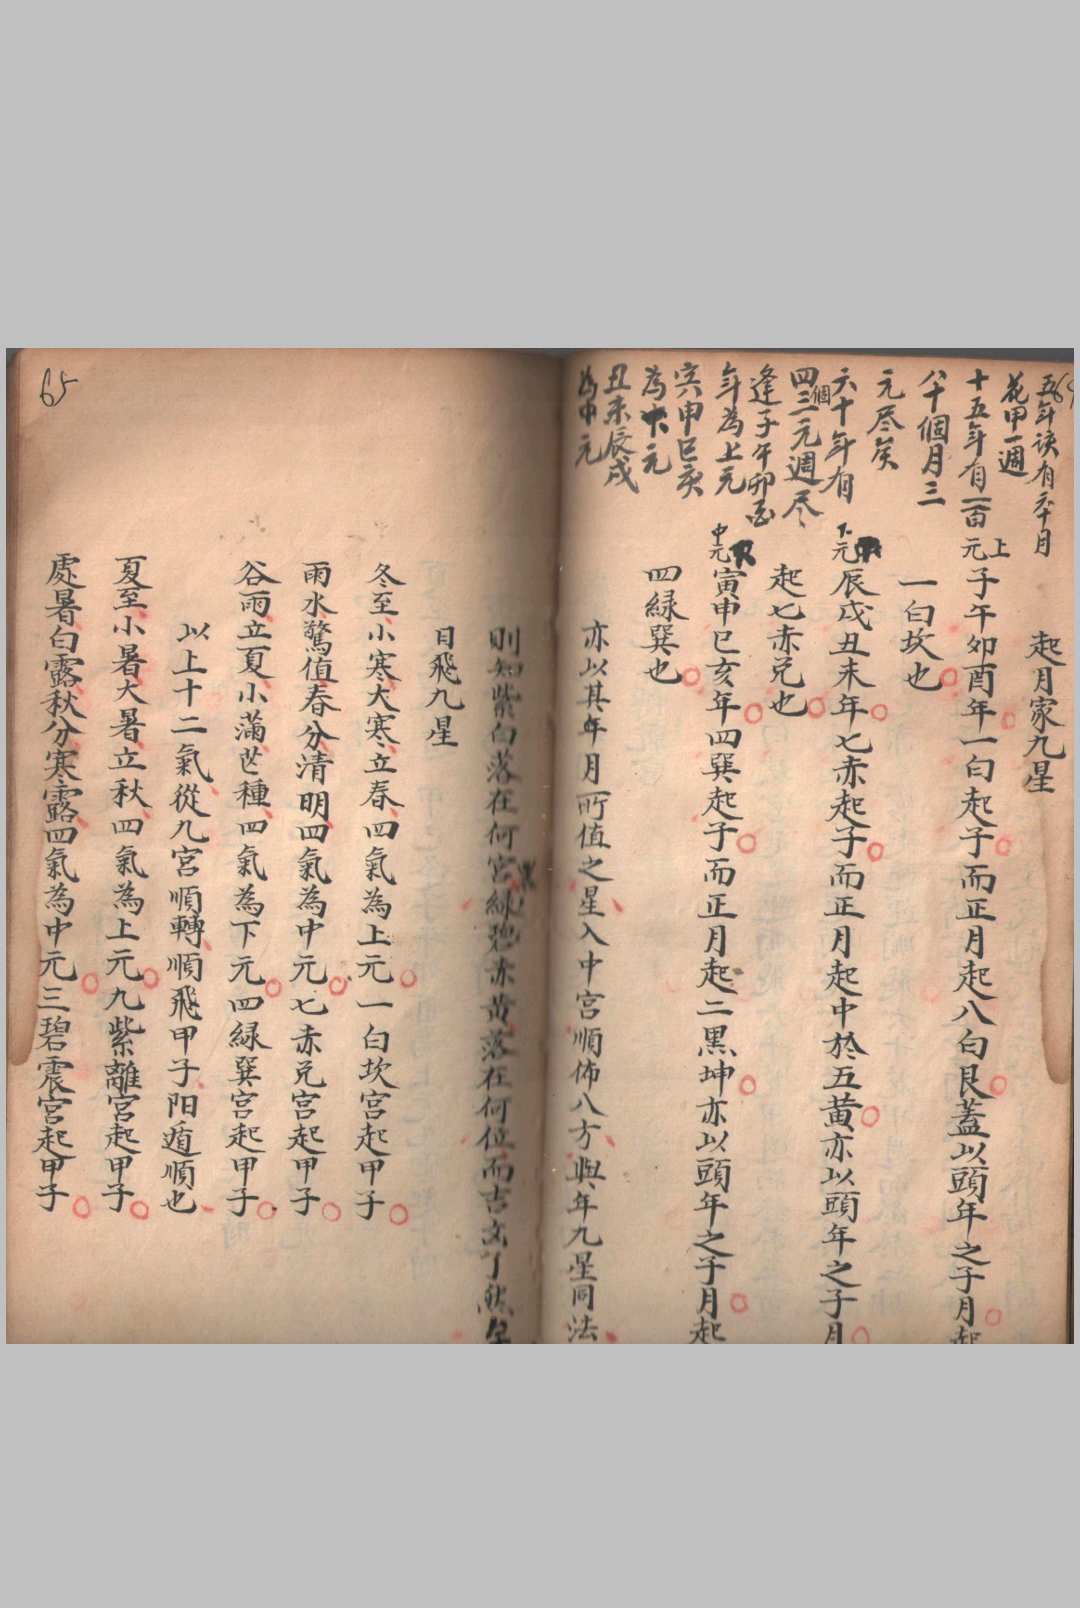 64
五年該有六十月
花甲一週
十五年有一百
八十個月三
元尽矣
六十年有
四個三元週尽
逢子午卯酉
年為上元
寅申巳亥
為下元
丑未辰戌
為中元
起月家九星
上元子午卯酉年一白起子而正月起八白艮蓋以頭年之子月起
一白坎也
下元辰戌丑未年七赤起子而正月起中於五黃亦以頭年之子月
起七赤兑也
中元寅申巳亥年四巽起子而正月起二黑坤亦以頭年之子月起
四緑巽也
亦以其年月所值之星入中宮順佈八方與年九星同法
則知紫白落在何宮緑碧赤黃落在何位而吉凶了然
日飛九星
冬至小寒大寒立春四氣為上元一白坎宮起甲子
雨水驚值春分清明四氣為中元七赤兑宮起甲子
谷雨立夏小滿芒種四氣為下元四緑巽宮起甲子
以上十二氣從九宮順轉順飛甲子阳遁順也
夏至小暑大暑立秋四氣為上元九紫離宮起甲子
處暑白露秋分寒露四氣為中元三碧震宮起甲子
65